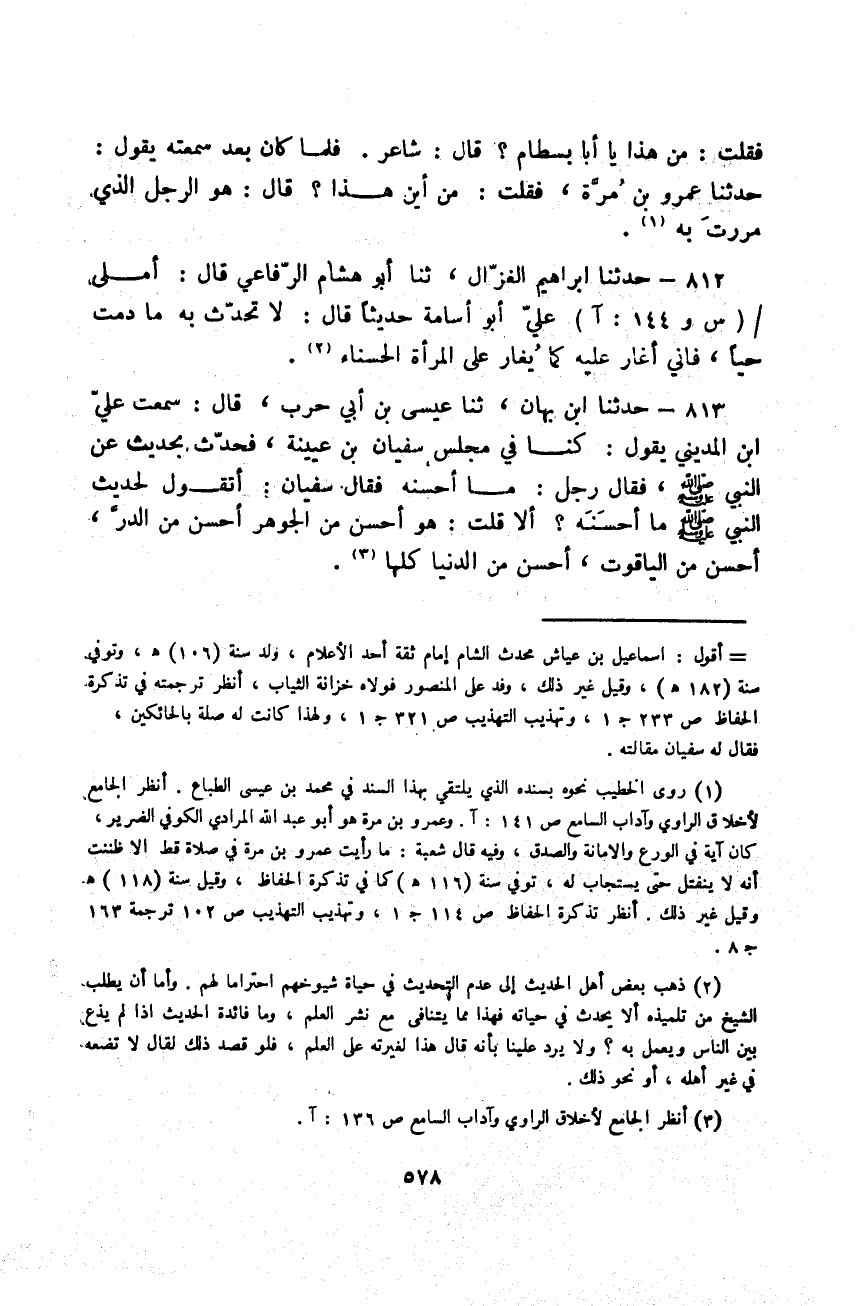 فقلت : من هذا يا أبا بسطام ؟ قال : شاعر . فلما كان بعد سمعته يقول :
حدثنا عمرو بن مُرَّة ، فقلت : من أين هذا ؟ قال : هو الرجل الذي
مررتَ به (١) .
٨١٢ – حدثنا ابراهيم الغزّال ، ثنا أبو هشام الرّفاعي قال : أملى
/ ( س و ١٤٤ : آ ) عليّ أبو أسامة حديثاً قال : لا تحدّث به ما دمت
حياً ، فاني أغار عليه كما يُغار على المرأة الحسناء (٢) .
٨١٣ – حدثنا ابن بهان ، ثنا عيسى بن أبي حرب ، قال : سمعت عليّ
ابن المديني يقول : كنا في مجلس سفيان بن عيينة ، فحدّث بحديث عن
النبي ﷺ ، فقال رجل : ما أحسنه فقال سفيان : أتقول لحديث
النبي ﷺ ما أحسَنَه ؟ ألا قلت : هو أحسن من الجوهر أحسن من الدرَّ ،
أحسن من الياقوت ، أحسن من الدنيا كلها (٣) .
= أقول : اسماعيل بن عياش محدث الشام إمام ثقة أحد الأعلام ، ولد سنة (١٠٦) ه ، وتوفي
سنة (١٨٢ ه) ، وقيل غير ذلك ، وفد على المنصور فولاه خزانة الثياب ، أنظر ترجمته في تذكرة
الحفاظ ص ٢٣٣ ج ١ ، وتهذيب التهذيب ص ٣٢١ ج ١ ، ولهذا كانت له صلة بالحائكين ،
فقال له سفيان مقالته .
(١) روى الخطيب نحوه بسنده الذي يلتقي بهذا السند في محمد بن عيسى الطباع . أنظر الجامع
لأخلاق الراوي وآداب السامع ص ١٤١ : آ . وعمرو بن مرة هو أبو عبد الله المرادي الكوفي الضرير ،
كان آية في الورع والامانة والصدق ، وفيه قال شعبة : ما رأيت عمرو بن مرة في صلاة قط الا ظننت
أنه لا ينفتل حتى يستجاب له ، توفي سنة (١١٦ ه) كما في تذكرة الحفاظ ، وقيل سنة (١١٨) ه
وقيل غير ذلك . أنظر تذكرة الحفاظ ص ١١٤ ج ١ ، وتهذيب التهذيب ص ١٠٢ ترجمة ١٦٣
ج ٨ .
(٢) ذهب بعض أهل الحديث إلى عدم التحديث في حياة شيوخهم احتراما لهم . وأما أن يطلب
الشيخ من تلميذه ألا يحدث في حياته فهذا مما يتنافى مع نشر العلم ، وما فائدة الحديث اذا لم يذع
بين الناس ويعمل به ؟ ولا يرد علينا بأنه قال هذا لغيرته على العلم ، فلو قصد ذلك لقال لا تضعه
في غير أهله ، أو نحو ذلك .
(٣) أنظر الجامع لأخلاق الراوي وآداب السامع ص ١٣٦ : آ .
٥٧٨